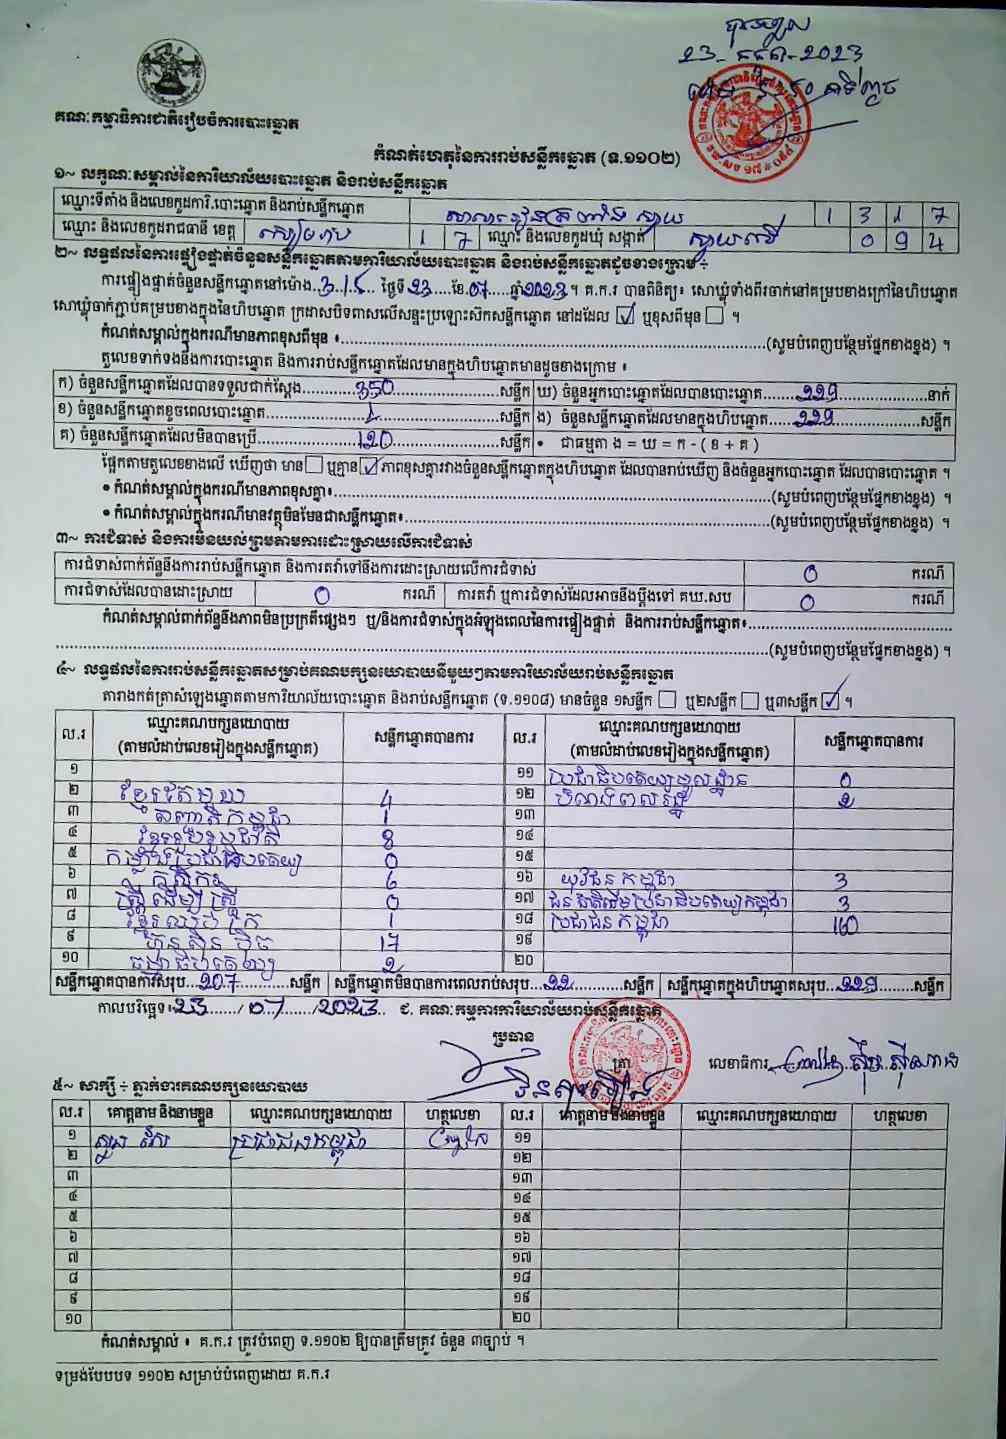 23-
2023
គណៈកម្មាធិការជាតិរៀបចំការបោះឆ្នោត
កំណត់ហេតុនៃការរាប់សន្លឹកឆ្នោត (ទ.១១០២)
១~ លក្ខណៈសម្គាល់នៃការិយាល័យបោះឆ្នោត និងរាប់សន្លឹកឆ្នោត
ឈ្មោះទីតាំង និងលេខកូដការិ.បោះឆ្នោត និងរាប់សន្លឹកឆ្នោត 1 3 1 7
ឈ្មោះ និងលេខកូដរាជធានី ខេត្ត សៀមរាប 1 7 ឈ្មោះ និងលេខកូដឃុំ សង្កាត់ ស្វាយលើ 0 9 4
២~ លទ្ធផលនៃការផ្ទៀងផ្ទាត់ចំនួនសន្លឹកឆ្នោតតាមការិយាល័យបោះឆ្នោត និងរាប់សន្លឹកឆ្នោតដូចខាងក្រោម ÷
ការផ្ទៀងផ្ទាត់ចំនួនសន្លឹកឆ្នោតនៅម៉ោង ថ្ងៃទី23 ខែ.07 ឆ្នាំ2023។ គ.ក.រ បានពិនិត្យ៖ សោឃ្លុំទាំងពីរចាក់នៅគម្របខាងក្រៅនៃហិបឆ្នោត
សោឃ្លុំចាក់ភ្ជាប់គម្របខាងក្នុងនៃហិបឆ្នោត ក្រដាសបិទពាសលើសន្ទះប្រឡោះសិកសន្លឹកឆ្នោត នៅដដែល ☑ ឬខុសពីមុន ☐ ។
កំណត់សម្គាល់ក្នុងករណីមានភាពខុសពីមុន ៖ (សូមបំពេញបន្ថែមផ្នែកខាងខ្នង) ។
តួលេខទាក់ទងនឹងការបោះឆ្នោត និងការរាប់សន្លឹកឆ្នោតដែលមានក្នុងហិបឆ្នោតមានដូចខាងក្រោម ៖
ក) ចំនួនសន្លឹកឆ្នោតដែលបានទទួលជាក់ស្តែង 350 សន្លឹក ឃ) ចំនួនអ្នកបោះឆ្នោតដែលបានបោះឆ្នោត 229 នាក់
ខ) ចំនួនសន្លឹកឆ្នោតខូចពេលបោះឆ្នោត 1 សន្លឹក ង) ចំនួនសន្លឹកឆ្នោតដែលមានក្នុងហិបឆ្នោត 229 សន្លឹក
គ) ចំនួនសន្លឹកឆ្នោតដែលមិនបានប្រើ 120 សន្លឹក • ជាធម្មតា ង = ឃ = ក - ( ខ + គ )
ផ្អែកតាមតួលេខខាងលើ ឃើញថា មាន ☐ ឬគ្មាន ☑ ភាពខុសគ្នារវាងចំនួនសន្លឹកឆ្នោតក្នុងហិបឆ្នោត ដែលបានរាប់ឃើញ និងចំនួនអ្នកបោះឆ្នោត ដែលបានបោះឆ្នោត ។
• កំណត់សម្គាល់ក្នុងករណីមានភាពខុសគ្នា៖ (សូមបំពេញបន្ថែមផ្នែកខាងខ្នង) ។
• កំណត់សម្គាល់ក្នុងករណីមានវត្ថុមិនមែនជាសន្លឹកឆ្នោត៖ (សូមបំពេញបន្ថែមផ្នែកខាងខ្នង) ។
៣~ ការជំទាស់ និងការមិនយល់ព្រមតាមការដោះស្រាយលើការជំទាស់
ការជំទាស់ពាក់ព័ន្ធនឹងការរាប់សន្លឹកឆ្នោត និងការតវ៉ាទៅនឹងការដោះស្រាយលើការជំទាស់ 0 ករណី
ការជំទាស់ដែលបានដោះស្រាយ 0 ករណី ការតវ៉ា ឬការជំទាស់ដែលអាចនឹងប្តឹងទៅ គឃ.សប 0 ករណី
កំណត់សម្គាល់ពាក់ព័ន្ធនឹងភាពមិនប្រក្រតីផ្សេងៗ ឬ/និងការជំទាស់ក្នុងអំឡុងពេលនៃការផ្ទៀងផ្ទាត់ និងការរាប់សន្លឹកឆ្នោត៖
(សូមបំពេញបន្ថែមផ្នែកខាងខ្នង) ។
៤~ លទ្ធផលនៃការរាប់សន្លឹកឆ្នោតសម្រាប់គណបក្សនយោបាយនីមួយៗតាមការិយាល័យរាប់សន្លឹកឆ្នោត
តារាងកត់ត្រាសំឡេងឆ្នោតតាមការិយាល័យបោះឆ្នោត និងរាប់សន្លឹកឆ្នោត (ទ.១១០៨) មានចំនួន ១សន្លឹក ☐ ឬ២សន្លឹក ☐ ឬ៣សន្លឹក ☑ ។
ល.រ ឈ្មោះគណបក្សនយោបាយ (តាមលំដាប់លេខរៀងក្នុងសន្លឹកឆ្នោត) សន្លឹកឆ្នោតបានការ ល.រ ឈ្មោះគណបក្សនយោបាយ (តាមលំដាប់លេខរៀងក្នុងសន្លឹកឆ្នោត) សន្លឹកឆ្នោតបានការ
១ ១១ ប្រជាធិបតេយ្យមូលដ្ឋាន 0
២ ខ្មែរតែមួយ 4 ១២ 2
៣ សញ្ជាតិកម្ពុជា 1 ១៣
៤ ខ្មែររួបរួមជាតិ 8 ១៤
៥ កម្លាំងប្រជាធិបតេយ្យ 0 ១៥
៦ កសិករ 6 ១៦ យុវជនកម្ពុជា 3
៧ ស្ត្រីដើម្បីស្ត្រី 0 ១៧ ជនជាតិដើមប្រជាធិបតេយ្យកម្ពុជា 3
៨ ខ្មែរឈប់ក្រ 1 ១៨ ប្រជាជនកម្ពុជា 160
៩ ហ៊្វុនស៊ិនប៉ិច 17 ១៩
១០ ធម្មាធិបតេយ្យ 2 ២០
សន្លឹកឆ្នោតបានការសរុប 207 សន្លឹក សន្លឹកឆ្នោតមិនបានការពេលរាប់សរុប 22 សន្លឹក សន្លឹកឆ្នោតក្នុងហិបឆ្នោតសរុប 229 សន្លឹក
កាលបរិច្ឆេទ៖ 23 / 07 / 2023 ជ. គណៈកម្មការការិយាល័យរាប់សន្លឹកឆ្នោត
ប្រធាន
ត្រា លេខាធិការ
៥~ សាក្សី ÷ ភ្នាក់ងារគណបក្សនយោបាយ
ល.រ គោត្តនាម និងនាមខ្លួន ឈ្មោះគណបក្សនយោបាយ ហត្ថលេខា ល.រ គោត្តនាម និងនាមខ្លួន ឈ្មោះគណបក្សនយោបាយ ហត្ថលេខា
១ ប្រជាជនកម្ពុជា ១១
២ ១២
៣ ១៣
៤ ១៤
៥ ១៥
៦ ១៦
៧ ១៧
៨ ១៨
៩ ១៩
១០ ២០
កំណត់សម្គាល់ ៖ គ.ក.រ ត្រូវបំពេញ ទ.១១០២ ឱ្យបានត្រឹមត្រូវ ចំនួន ៣ច្បាប់ ។
ទម្រង់បែបបទ ១១០២ សម្រាប់បំពេញដោយ គ.ក.រ